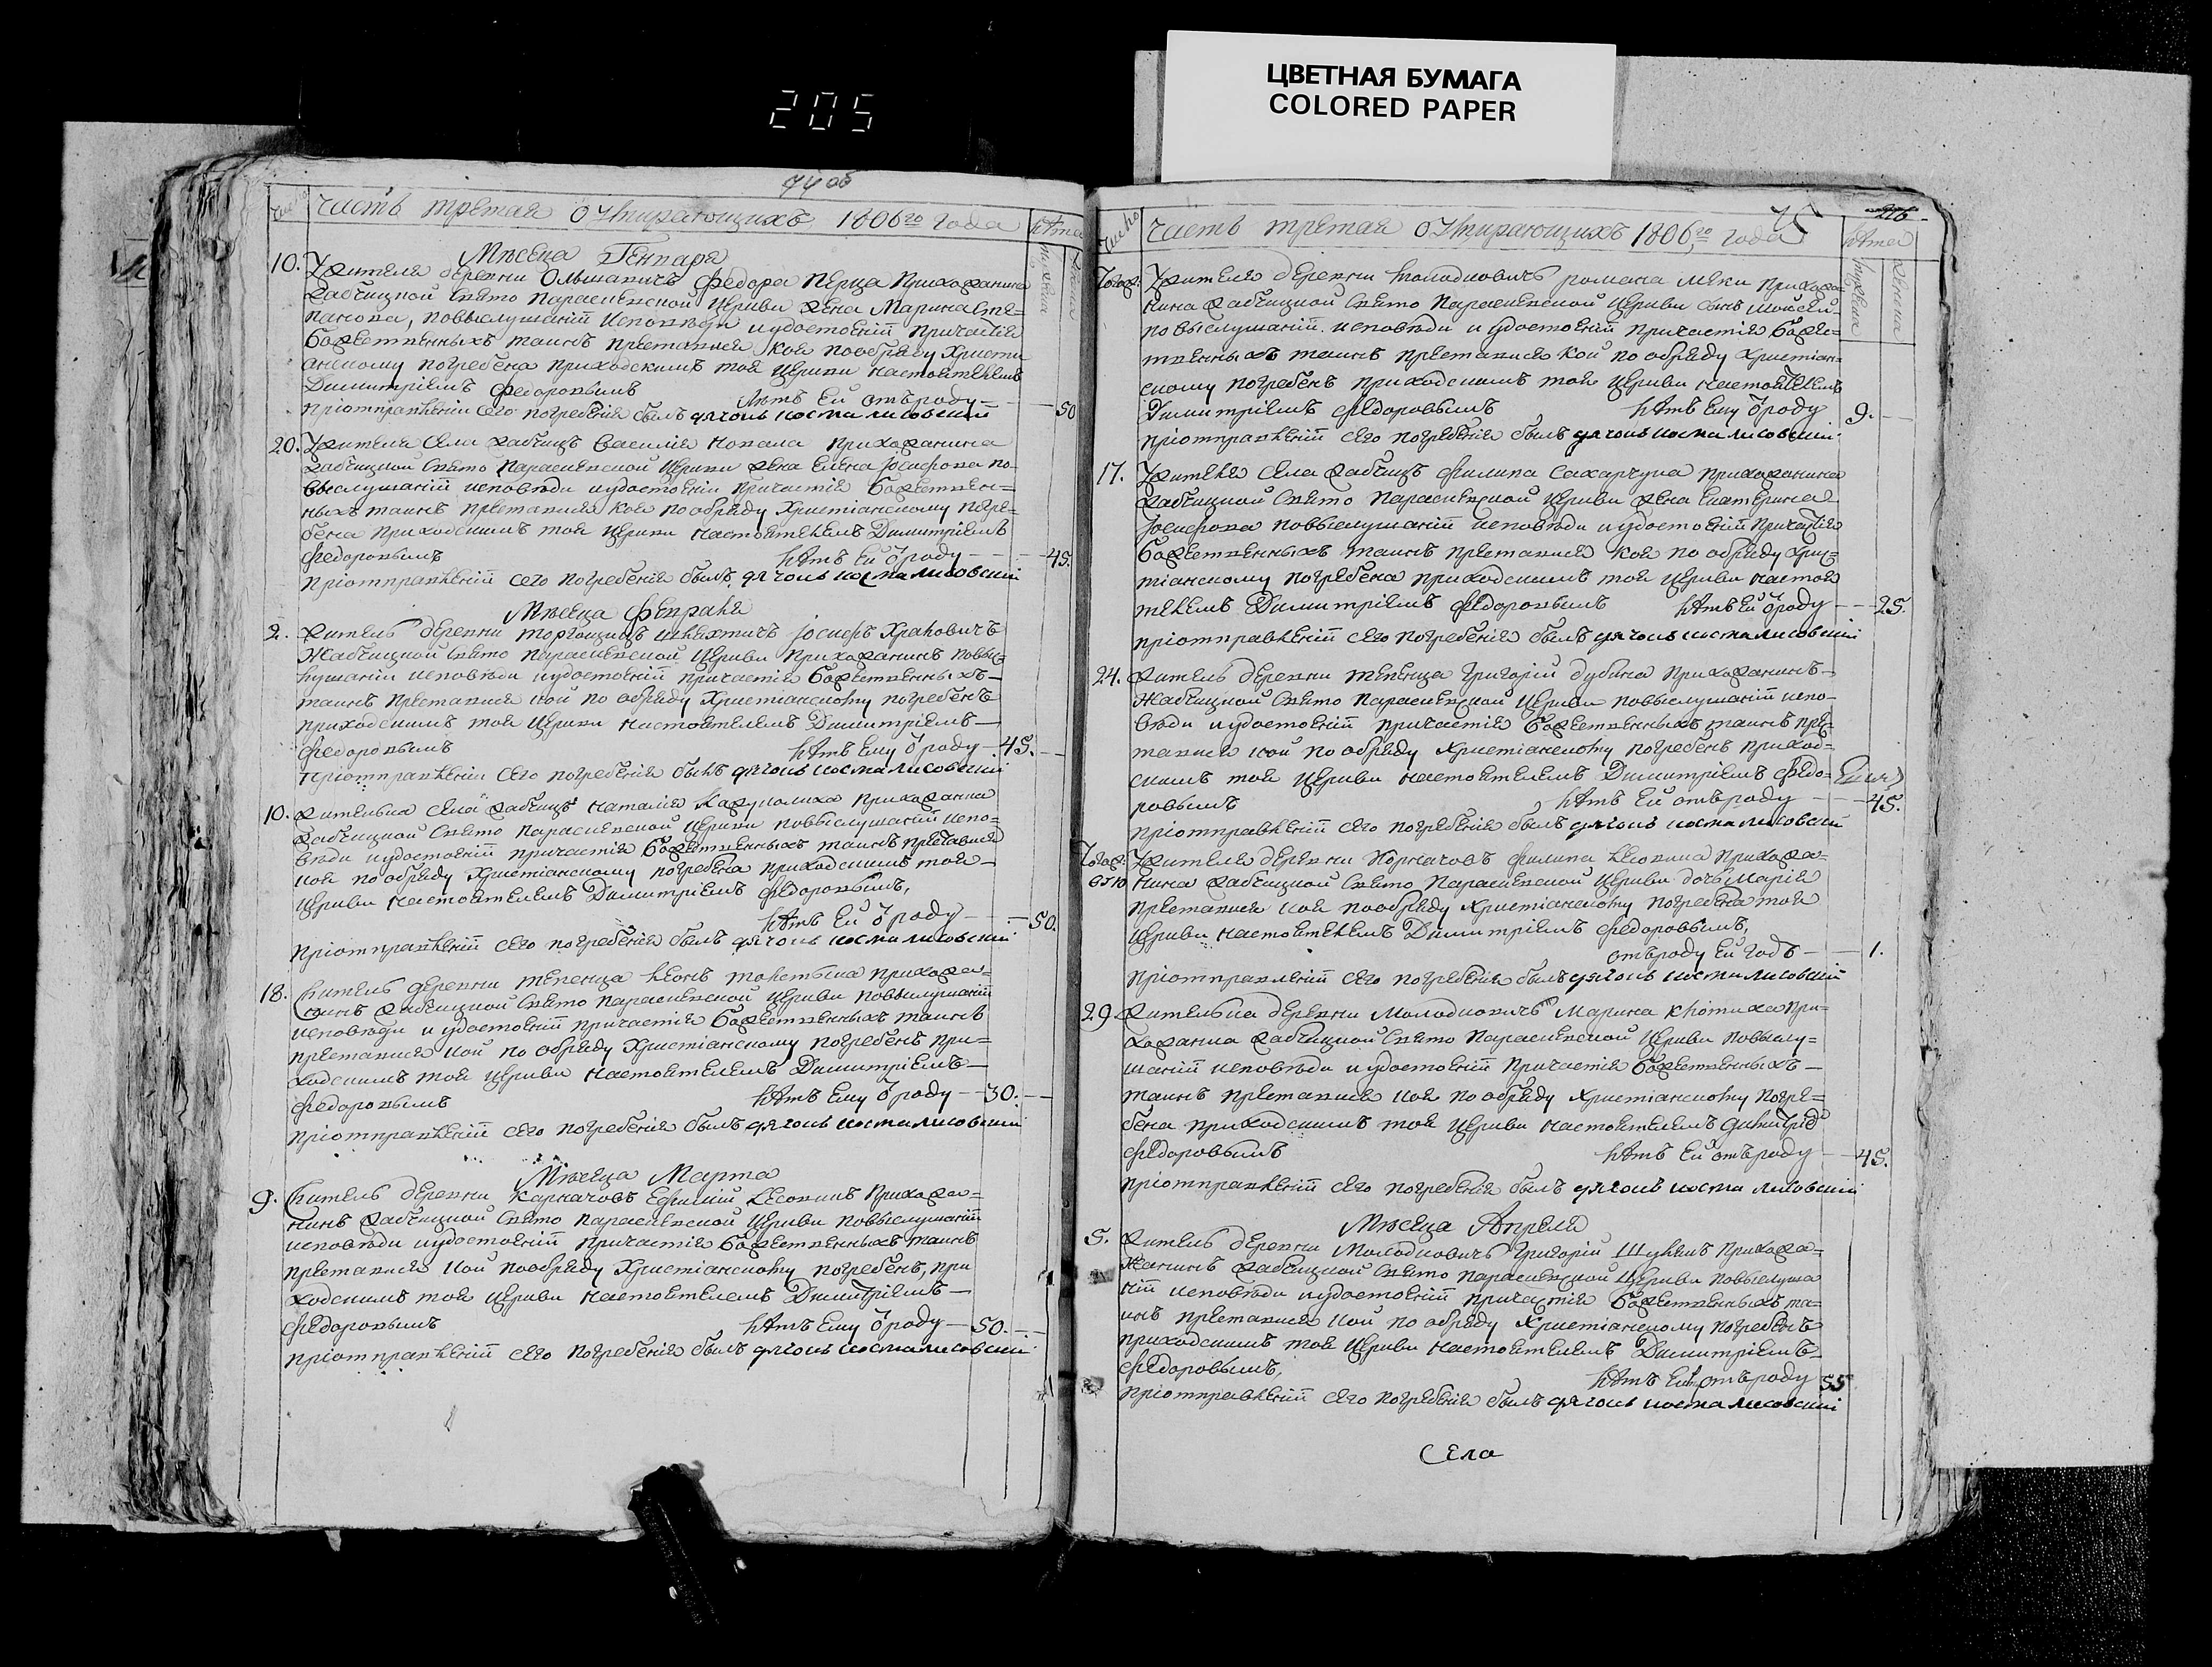 205
ЦВЕТНАЯ БУМАГА
COLORED PAPER
74 об
Число
Часть третая о Умирающихъ 1806го года
Лѣта
Мѣсеца Генваря
10. Жителя деревни Олшаничъ Федора Перца Прихожанина
Жабчицкой Свято Параскевской Церкви Жена Марина Сте-
панова, повыслушаніи Исповѣди иудостоеніи Причастія
Божественныхъ таинъ преставися коя пообряду Христи
анскому погребена приходскимъ тоя Церкви настоятелемъ
Димитріемъ Федоровымъ Лѣтъ Ей отъроду 50
Приотправленіи сего погребенія былъ дячокъ косма лисовский
20. Жителя Села Жабчицъ Василія Прихожанина
Жабчицкой Свято Параскевской Церкви Жена Елена Іосифова по
выслушаніи исповѣди иудостоеніи Причастія Божествен=
ныхъ таинъ преставися коя пообряду Христіанскому погре=
бена Приходскимъ тоя Церкви настоятелемъ Димитріемъ
Федоровымъ лѣтъ Ей ѿроду 45.
Приотправленіи сего погребенія былъ дячокъ косма лисовский
Мѣсеца Февраля
2. Житель деревни шляхтичъ Іосифъ Храповичъ
Жабчицкой Свято Параскевской Церкви Прихожанинъ повыс
лушаніи исповѣди иудостоеніи причастія Божественныхъ
таинъ преставися кой по обряду Христіанскому погребенъ
приходскимъ тоя Церкви настоятелемъ Димитріемъ
Федоровымъ лѣтъ Ему ѿроду 45.
Приотправленіи сего погребенія былъ дячокъ косма лисовский
10. Жителька Села Жабчицъ Наталія Прихожанка
Жабчицкой Свято Параскевской Церкви повыслушаніи испо=
вѣди иудостоеніи причастія Божественныхъ таинъ преставися
коя по обряду Христіанскому погребена приходскимъ тоя
Церкви настоятелемъ Димитріемъ Федоровымъ,
лѣтъ Ей ѿроду 50.
Приотправленіи сего погребенія былъ дячокъ косма лисовский
18. Житель деревни прихожа=
нинъ Жабчицкой Свято Параскевской Церкви повыслушаніи
исповѣди и удостоеніи причастія Божественныхъ таинъ
преставися кой по обряду Христіанскому погребенъ при=
ходскимъ тоя Церкви настоятелемъ Димитріемъ
Федоровымъ лѣтъ Ему ѿроду 30.
Приотправленіи сего погребенія былъ дячокъ косма лисовский
Мѣсеца Марта
9. Житель деревни Карначовъ Прихожа=
нинъ Жабчицкой Свято Параскевской Церкви повыслушаніи
исповѣди иудостоеніи причастія Божественныхъ таинъ
преставися кой пообряду Христіанскому погребенъ, при
ходскимъ тоя Церкви настоятелемъ Димитріемъ
Федоровымъ лѣтъ Ему ѿроду 50.
Приотправленіи сего погребенія былъ дячокъ косма лисовский
75
Число
Часть третая о Умирающихъ 1806го года
Лѣта
Тогож. Жителя деревни Молодковичъ романа прихожа
нина Жабчицкой Свято Параскевской Церкви сынъ Мойсей
по выслушаніи исповѣди и удостоеніи причастія Боже=
ственныхъ таинъ преставися кой по обряду Христіан=
скому погребенъ приходскимъ тоя Церкви настоятелемъ
Димитріемъ Федоровымъ лѣтъ Ему ѿроду 9.
приотправленіи сего погребенія былъ дячокъ косма лисовский
17. Жителя Села Жабчицъ Филипа Сахарчука прихожанина
Жабчицкой Свято Параскевской Церкви Жена Екатерина
Іосифова повыслушаніи исповѣди иудостоеніи Причастія
Божественныхъ таинъ преставися коя по обряду Хрис=
тіанскому погребена приходскимъ тоя Церкви настоя
телемъ Димитріемъ Федоровымъ лѣтъ Ей ѿроду 25.
приотправленіи сего погребенія былъ дячокъ косма лисовский
24. Житель деревни Григорій дубина прихожанинъ
Жабчицкой Свято Параскевской Церкви повыслушаніи испо-
вѣди иудостоеніи причастія Божественныхъ таинъ пре=
ставися кой по обряду Христіанскому погребенъ приход=
скимъ тоя Церкви настоятелемъ Димитріемъ Федо=
ровымъ лѣтъ Ей отъроду 45.
приотправленіи сего погребенія былъ дячокъ косма лисовский
Тогож. Жителя деревни Филипа прихожа=
нина Жабчицкой Свято Параскевской Церкви дочь Марія
преставися коя пообряду Христіанскому погребена тоя
Церкви настоятелемъ Димитріемъ Федоровымъ,
отъроду Ей годъ 1.
приотправленіи сего погребенія былъ дячокъ косма лисовский
29. Жителька деревни Молодковичъ Марина При=
хожанка Жабчицкой Свято Параскевской Церкви повыслу=
шаніи исповѣди иудостоеніи Причастія Божественныхъ
таинъ преставися коя по обряду Христіанскому погре=
бена приходскимъ тоя Церкви настоятелемъ
Федоровымъ лѣтъ Ей отъроду 45.
приотправленіи сего погребенія былъ дячокъ косма лисовский
Мѣсеца Апреля
5. Житель деревни Молодковичъ Григорій Прихожа=
нинъ Жабчицкой Свято Параскевской Церкви повыслуша
ніи исповѣди иудостоеніи причастія Божественныхъ та=
инъ преставися кой по обряду Христіанскому погребенъ
приходскимъ тоя Церкви настоятелемъ Димитріемъ
Федоровымъ, лѣтъ отъроду 55
приотправленіи сего погребенія былъ дячокъ косма лисовский
Села